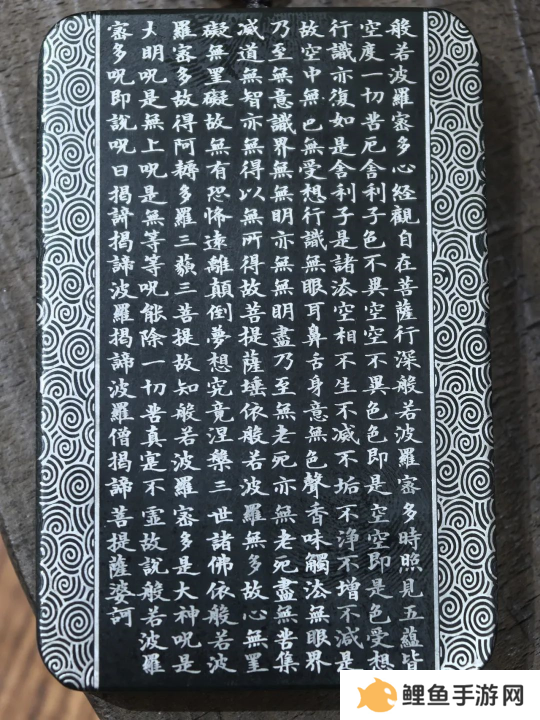 般若波羅密多心経觀自在菩薩行深般若波羅密多時照見五蘊皆
空度一切苦厄舍利子色不異空空不異色色即是空空即是色受想
行識亦復如是舍利子是諸法空相不生不滅不垢不淨不增不減是
故空中無色無受想行識無眼耳鼻舌身意無色聲香味觸法無眼界
乃至無意識界無無明亦無無明盡乃至無老死亦無老死盡無苦集
滅道無智亦無得以無所得故菩提薩埵依般若波羅無多故心無罣
礙無罣礙故無有恐怖遠離顛倒夢想究竟涅槃三世諸佛依般若波
羅密多故得阿耨多羅三藐三菩提故知般若波羅密多是大神呪是
大明呪是無上呪是無等等呪能除一切苦真寔不靈故説般若波羅
密多呪即説呪曰揭諦揭諦波羅揭諦波羅僧揭諦菩提薩婆訶
鲤鱼手游网